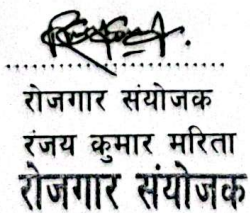 रोजगार संयोजक
रंजय कुमार मरिता
रोजगार संयोजक